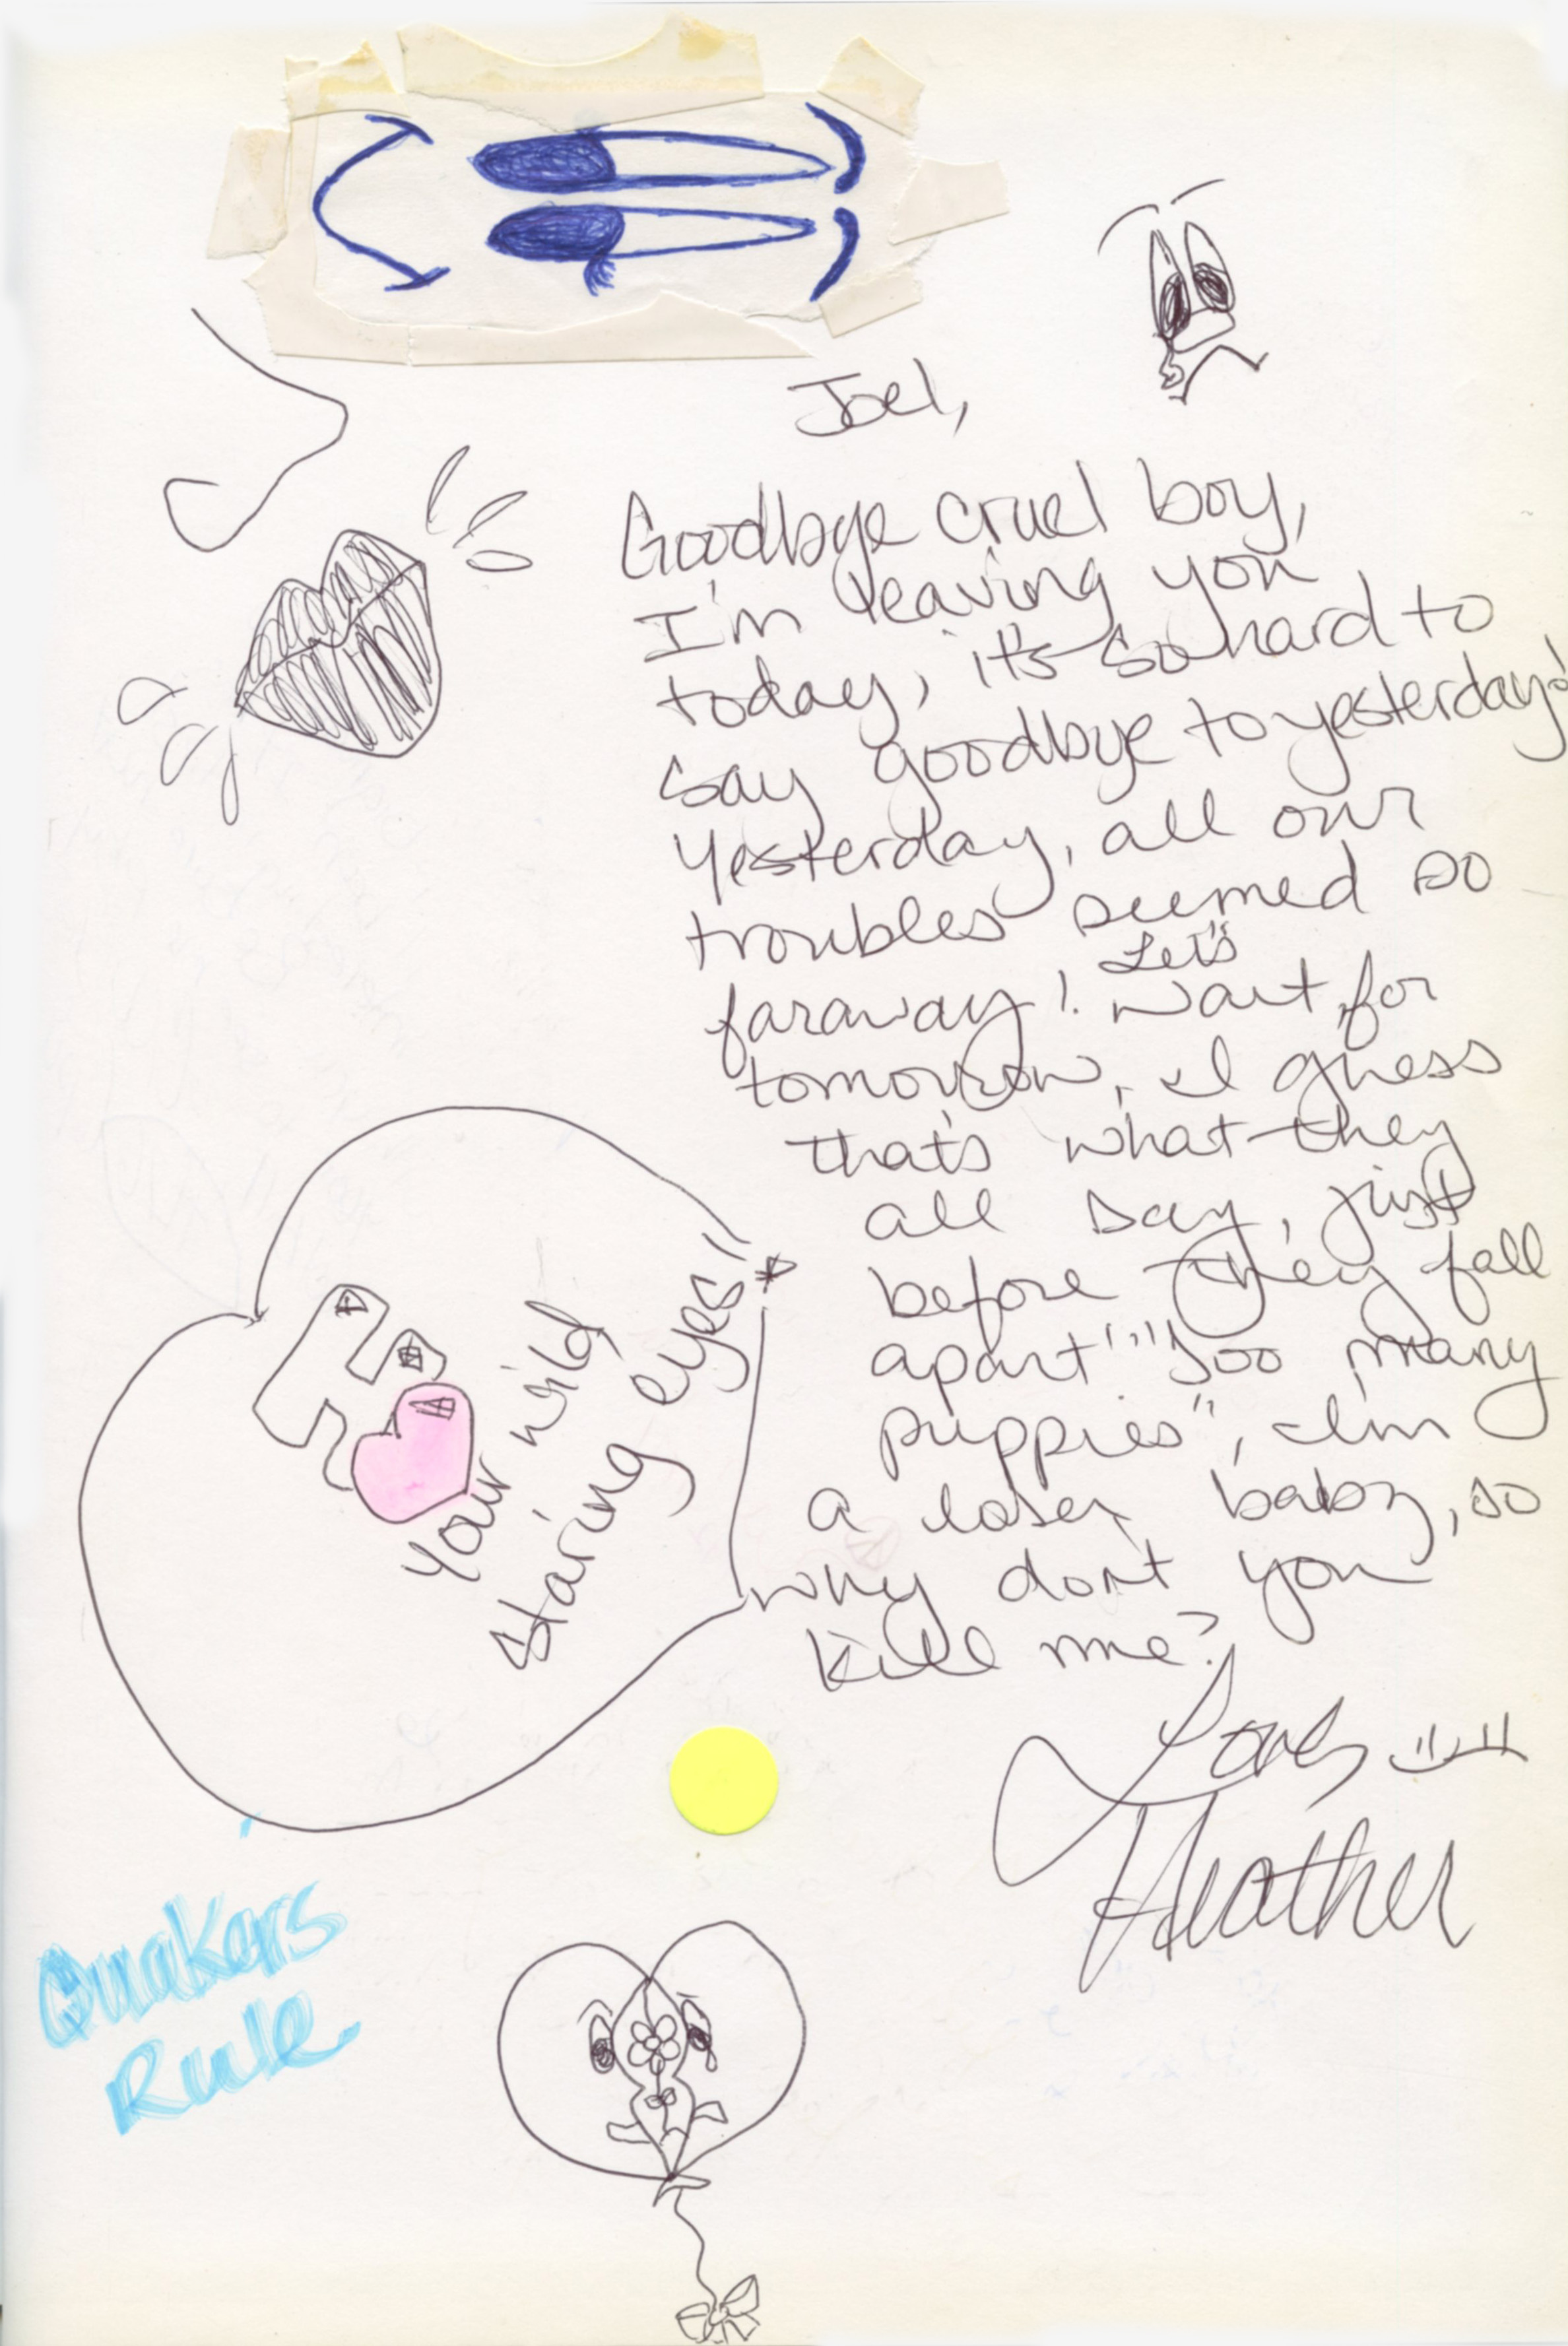 Joel,
Goodbye cruel boy,
I'm leaving you
today, it's so hard to
say goodbye to yesterday!
Yesterday, all our
troubles seemed so
faraway! Let's wait for
tomorrow, I guess
that's what they
all say, just
before they fall
apart" "Too many
puppies", I'm
a loser baby, so
why dont you
kill me?
Love,
Heather
Your wild
staring eyes!!
Quakers
Rule.